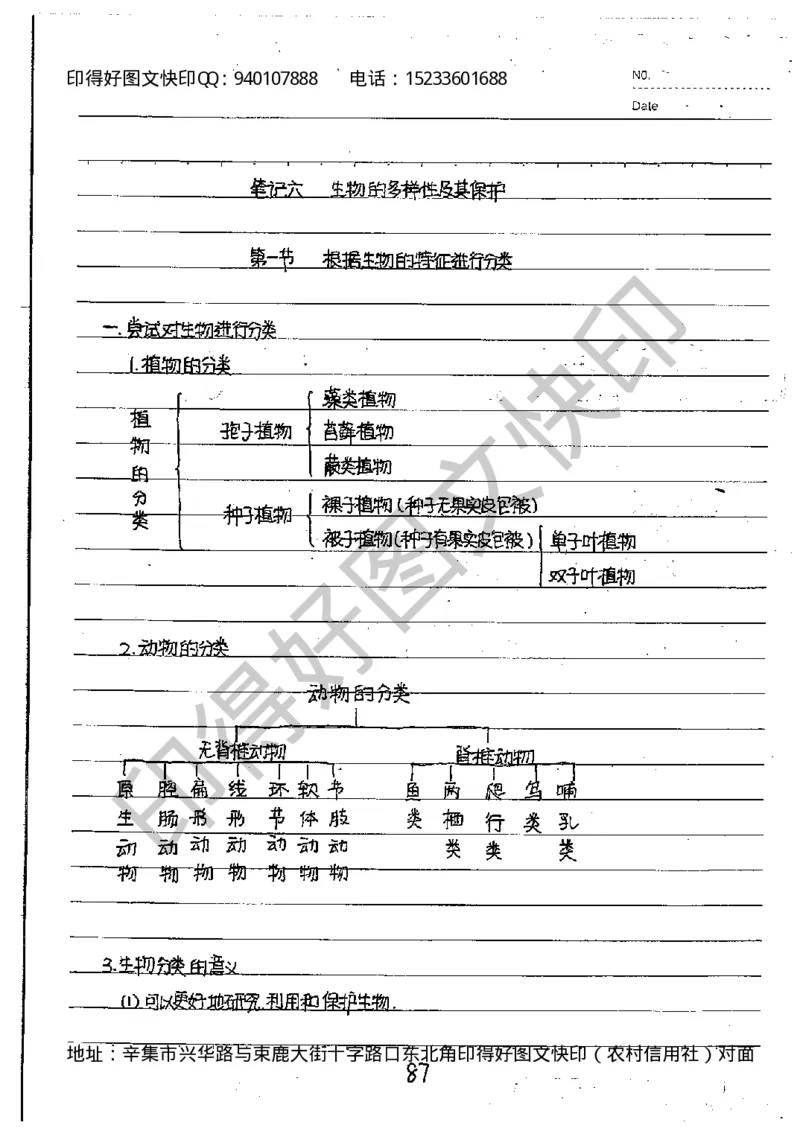 印得好图文快印QQ：940107888 电话：15233601688
NO.
Date
笔记六 生物的多样性及其保护
第一节 根据生物的特征进行分类
一.尝试对生物进行分类
1.植物的分类
植物的分类
孢子植物
藻类植物
苔藓植物
蕨类植物
种子植物
裸子植物(种子无果实皮包被)
被子植物(种子有果实皮包被)
单子叶植物
双子叶植物
2.动物的分类
动物的分类
无脊椎动物 脊椎动物
原生动物 腔肠动物 扁形动物 线形动物 环节动物 软体动物 节肢动物 鱼类 两栖类 爬行类 鸟类 哺乳类
3.生物分类的意义
(1)可以更好地研究.利用和保护生物.
地址：辛集市兴华路与束鹿大街十字路口东北角印得好图文快印（农村信用社）对面
87
印得好图文快印